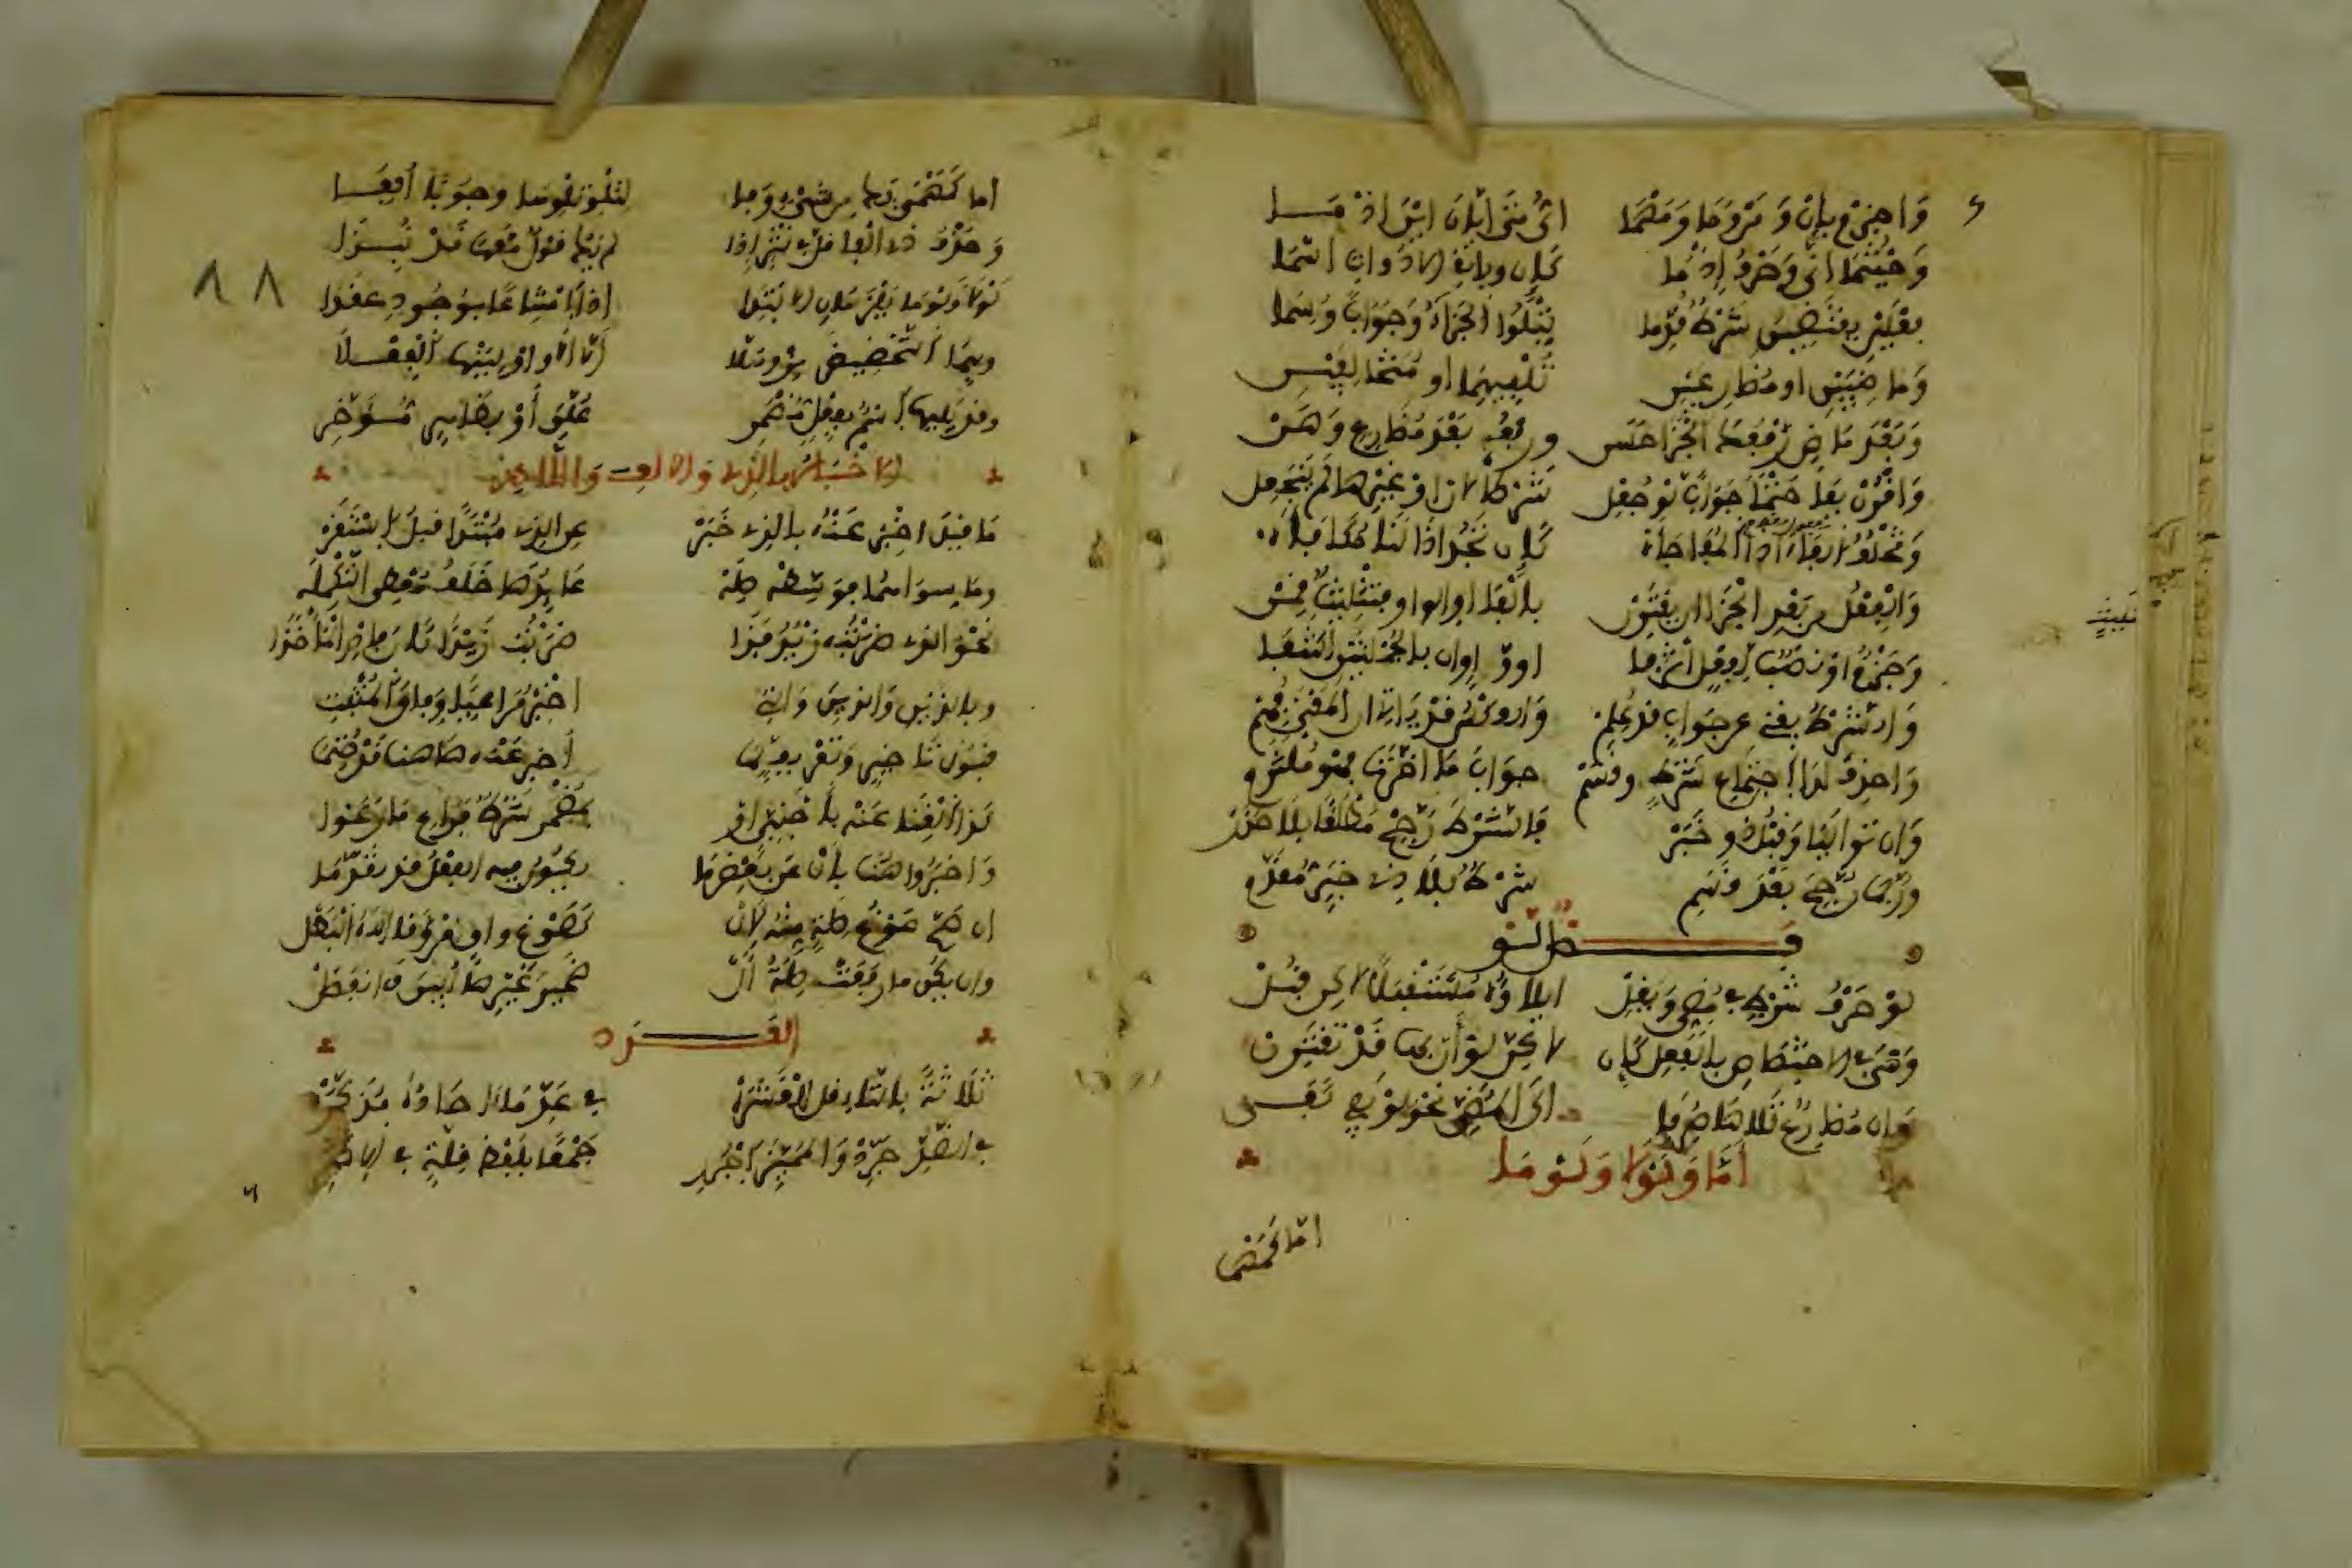 وَاجْزِمْ بِإِنْ وَمَنْ وَمَا وَمَهْمَا أَيٍّ مَتَى أَيَّانَ أَيْنَ إِذْ مَا
وَحَيْثُمَا أَنَّى وَحَرْفٌ إِذْ مَا كَإِنْ وَبَاقِي الأَدَوَاتِ أَسْمَا
فِعْلَيْنِ يَقْتَضِينَ شَرْطٌ قُدِّمَا يَتْلُو الْجَزَاءُ وَجَوَابًا وُسِمَا
وَمَاضِيَيْنِ أَوْ مُضَارِعَيْنِ تُلْفِيهِمَا أَوْ مُتَخَالِفَيْنِ
وَبَعْدَ مَاضٍ رَفْعُكَ الْجَزَا حَسَن وَرَفْعُهُ بَعْدَ مُضَارِعٍ وَهَنْ
وَاقْرُنْ بِفَا حَتْمًا جَوَابًا لَوْ جُعِلْ شَرْطًا لِإِنْ أَوْ غَيْرِهَا لَمْ يَنْجَعِلْ
وَتَخْلُفُ الْفَاءَ إِذَا الْمُفَاجَأَهْ كَإِنْ تَجُدْ إِذَا لَنَا مُكَافَأَهْ
وَالْفِعْلُ مِنْ بَعْدِ الْجَزَا إِنْ يَقْتَرِنْ بِالْفَا أَوِ الْوَاوِ بِتَثْلِيثٍ قَمِنْ
وَجَزْمٌ أَوْ نَصْبٌ لِفِعْلٍ إِثْرَ فَا أَوْ وَاوٍ إِنْ بِالْجُمْلَتَيْنِ اكْتُنِفَا
وَالشَّرْطُ يُغْنِي عَنْ جَوَابٍ قَدْ عُلِمْ وَالْعَكْسُ قَدْ يَأْتِي إِنِ الْمَعْنَى فُهِمْ
وَاحْذِفْ لَدَى اجْتِمَاعِ شَرْطٍ وَقَسَمْ جَوَابَ مَا أَخَّرْتَ فَهْوَ مُلْتَزَمْ
وَإِنْ تَوَالَيَا وَقَبْلُ ذُو خَبَرْ فَالشَّرْطَ رَجِّحْ مُطْلَقًا بِلَا حَذَرْ
وَرُبَّمَا رُجِّحَ بَعْدَ قَسَمِ شَرْطٌ بِلَا ذِي خَبَرٍ مُقَدَّمِ
فَصْلُ لَوْ
لَوْ حَرْفُ شَرْطٍ فِي مُضِيٍّ وَيَقِلّْ إِيلَاؤُهُ مُسْتَقْبَلًا لَكِنْ قُبِلْ
وَهْيَ فِي الِاخْتِصَاصِ بِالْفِعْلِ كَإِنْ لَكِنَّ لَوْ أَنَّ بِهَا قَدْ تَقْتَرِنْ
وَإِنْ مُضَارِعٌ تَلَاهَا صُرِفَا إِلَى الْمُضِيِّ نَحْوُ لَوْ يَفِي كَفَى
أَمَّا وَلَوْلَا وَلَوْمَا
أما كمهما
أما كَمَهْمَا يَكُ مِنْ شَيْءٍ وَفَا لِتِلْوِ تِلْوِهَا وُجُوبًا أُلِفَا
وَحَذْفُ ذِي الْفَا قَلَّ فِي نَثْرٍ إِذَا لَمْ يَكُ قَوْلٌ مَعَهَا قَدْ نُبِذَا
لَوْلَا وَلَوْمَا يَلْزَمَانِ الِابْتِدَا إِذَا امْتِنَاعًا بِوُجُودٍ عَقَدَا
وَبِهِمَا التَّحْضِيضَ مِزْ وَهَلَّا أَلَّا أَلَا وَأَوْلِيَنْهَا الْفِعْلَا
وَقَدْ يَلِيهَا اسْمٌ بِفِعْلٍ مُضْمَرِ عُلِّقَ أَوْ بِظَاهِرٍ مُؤَخَّرِ
الإِخْبَارُ بِالَّذِي وَالْأَلِفِ وَاللَّامِ
مَا قِيلَ أَخْبِرْ عَنْهُ بِالَّذِي خَبَرْ عَنِ الَّذِي مُبْتَدَأً قَبْلُ اسْتَقَرّْ
وَمَا سِوَاهُمَا فَوَسِّطْهُ صِلَهْ عَائِدُهَا خَلَفُ مُعْطِي التَّكْمِلَهْ
نَحْوُ الَّذِي ضَرَبْتُهُ زَيْدٌ فَذَا ضَرَبْتُ زَيْدًا كَانَ فَادْرِ الْمَأْخَذَا
وَبِاللَّذَيْنِ وَالَّذِينَ وَالَّتِي أَخْبِرْ مُرَاعِيًا وِفَاقَ الْمُثْبَتِ
قَبُولُ تَأْخِيرٍ وَتَعْرِيفٍ لِمَا أُخْبِرَ عَنْهُ هَاهُنَا قَدْ حُتِمَا
كَذَا الْغِنَى عَنْهُ بِأَجْنَبِيٍّ أَوْ بِمُضْمَرٍ شَرْطٌ فَرَاعِ مَا رَعَوْا
وَأَخْبَرُوا هُنَا بِأَلْ عَنْ بَعْضِ مَا يَكُونُ فِيهِ الْفِعْلُ قَدْ تَقَدَّمَا
إِنْ صَحَّ صَوْغُ صِلَةٍ مِنْهُ لِأَلْ كَصَوْغِ وَاقٍ مِنْ وَقَى اللهُ الْبَطَلْ
وَإِنْ يَكُنْ مَا رَفَعَتْ صِلَةُ أَلْ ضَمِيرَ غَيْرِهَا أُبِينَ وَانْفَصَلْ
الْعَدَدُ
ثَلَاثَةً بِالتَّاءِ قُلْ لِلْعَشَرَهْ فِي عَدِّ مَا آحَادُهُ مُذَكَّرَهْ
فِي الضِّدِّ جَرِّدْ وَالْمُمَيِّزَ اجْرُرِ جَمْعًا بِلَفْظِ قِلَّةٍ فِي الْأَكْثَرِ